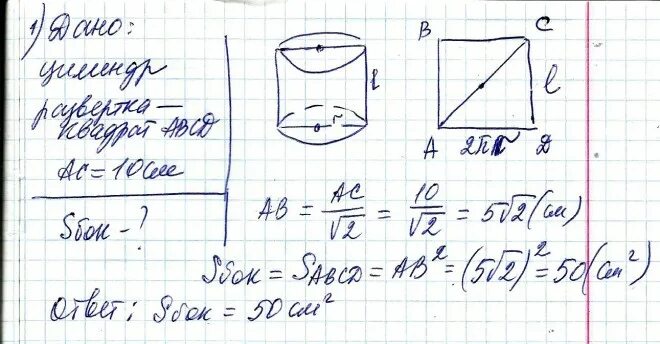 1) Дано:
цилиндр
развертка —
квадрат ABCD
AC = 10 см
Sбок - ?
l
r
B C
l
A 2πr D
AB = AC/√2 = 10/√2 = 5√2 (см)
Sбок = SABCD = AB² = (5√2)² = 50 (см²)
Ответ: Sбок = 50 см²